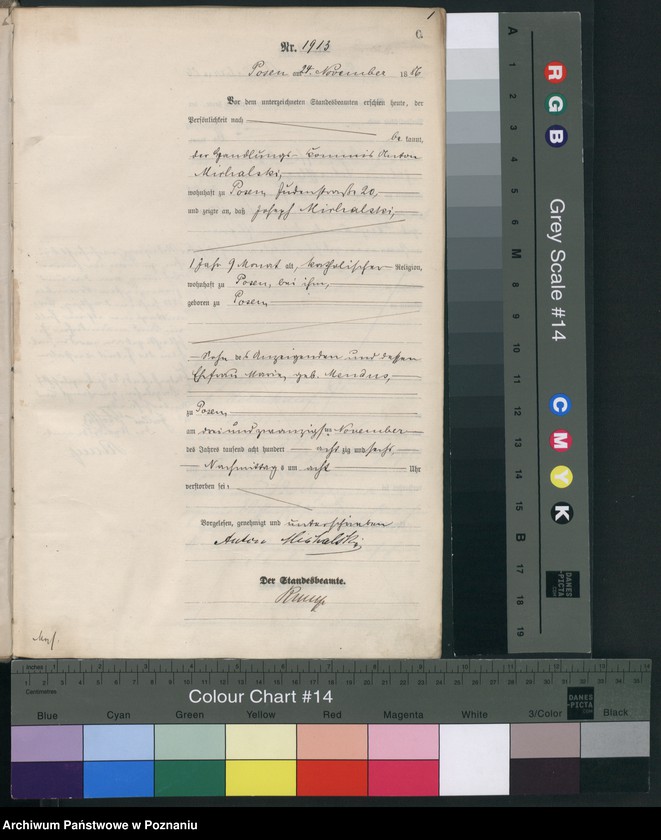 1
C.
Nr. 1913
Posen am 24. November 1886
Vor dem unterzeichneten Standesbeamten erschien heute, der
Persönlichkeit nach
be kannt,
der Handlungs-Commis Anton
Michalski,
wohnhaft zu Posen Judenstraße 20,
und zeigte an, daß Joseph Michalski,
1 Jahr 9 Monat alt, katholischer Religion,
wohnhaft zu Posen, bei ihm,
geboren zu Posen
Sohn des Anzeigenden und dessen
Ehefrau Marie, geb.
zu Posen
am drei und zwanzigsten November
des Jahres tausend acht hundert achtzig und sechs,
Nachmittags um acht Uhr
verstorben sei:
Vorgelesen, genehmigt und unterschrieben
Anton Michalski
Der Standesbeamte.
Grey Scale #14
R
G
B
C
M
Y
K
A
1
2
3
4
5
6
M
8
9
10
11
12
13
14
15
B
17
18
19
DANES
-PICTA
.COM
Inches
Centimetres
Colour Chart #14
DANES
-PICTA
.COM
Blue Cyan Green Yellow Red Magenta White 3/Color Black
Archiwum Państwowe w Poznaniu